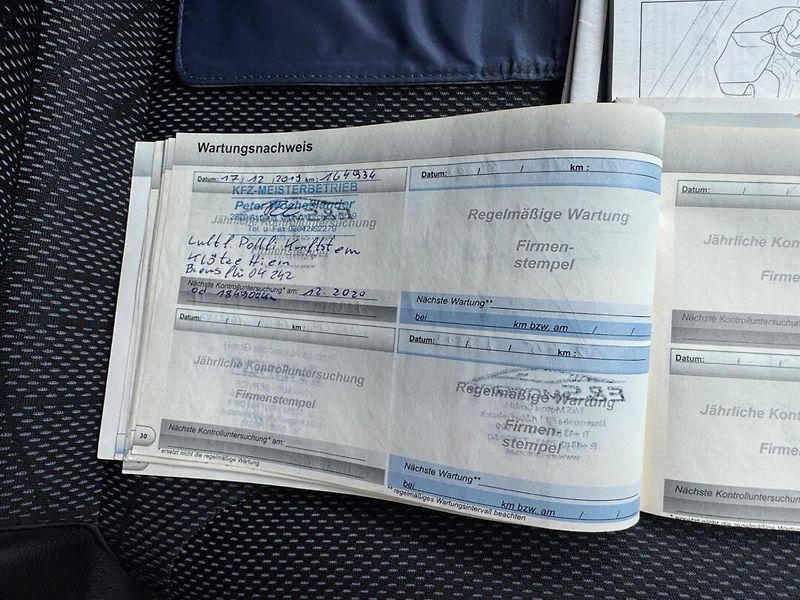 Wartungsnachweis
Datum: 17, 12, 2019 km: 164934
KFZ-MEISTERBETRIEB
Peter
Jährliche Kontrolluntersuchung
Tel. u. Fax 02642/52279
Nächste Kontrolluntersuchung* am: 12. 2020
od 184900km
Datum: / / km :
Regelmäßige Wartung
Firmen-
stempel
Nächste Wartung**
bei km bzw. am / /
Datum: / / km :
Jährliche Kontrolluntersuchung
Firmenstempel
Nächste Kontrolluntersuchung* am:
30
* ersetzt nicht die regelmäßige Wartung
Datum: / / km :
Regelmäßige Wartung
Firmen-
stempel
Nächste Wartung**
bei km bzw. am / /
** regelmäßiges Wartungsintervall beachten
Datum: / /
Jährliche Kon
Firme
Nächste Kontrolluntersuchung
Datum: / /
Jährliche Kon
Firme
Nächste Kontrolluntersuchung
* ersetzt nicht die regelmäßige